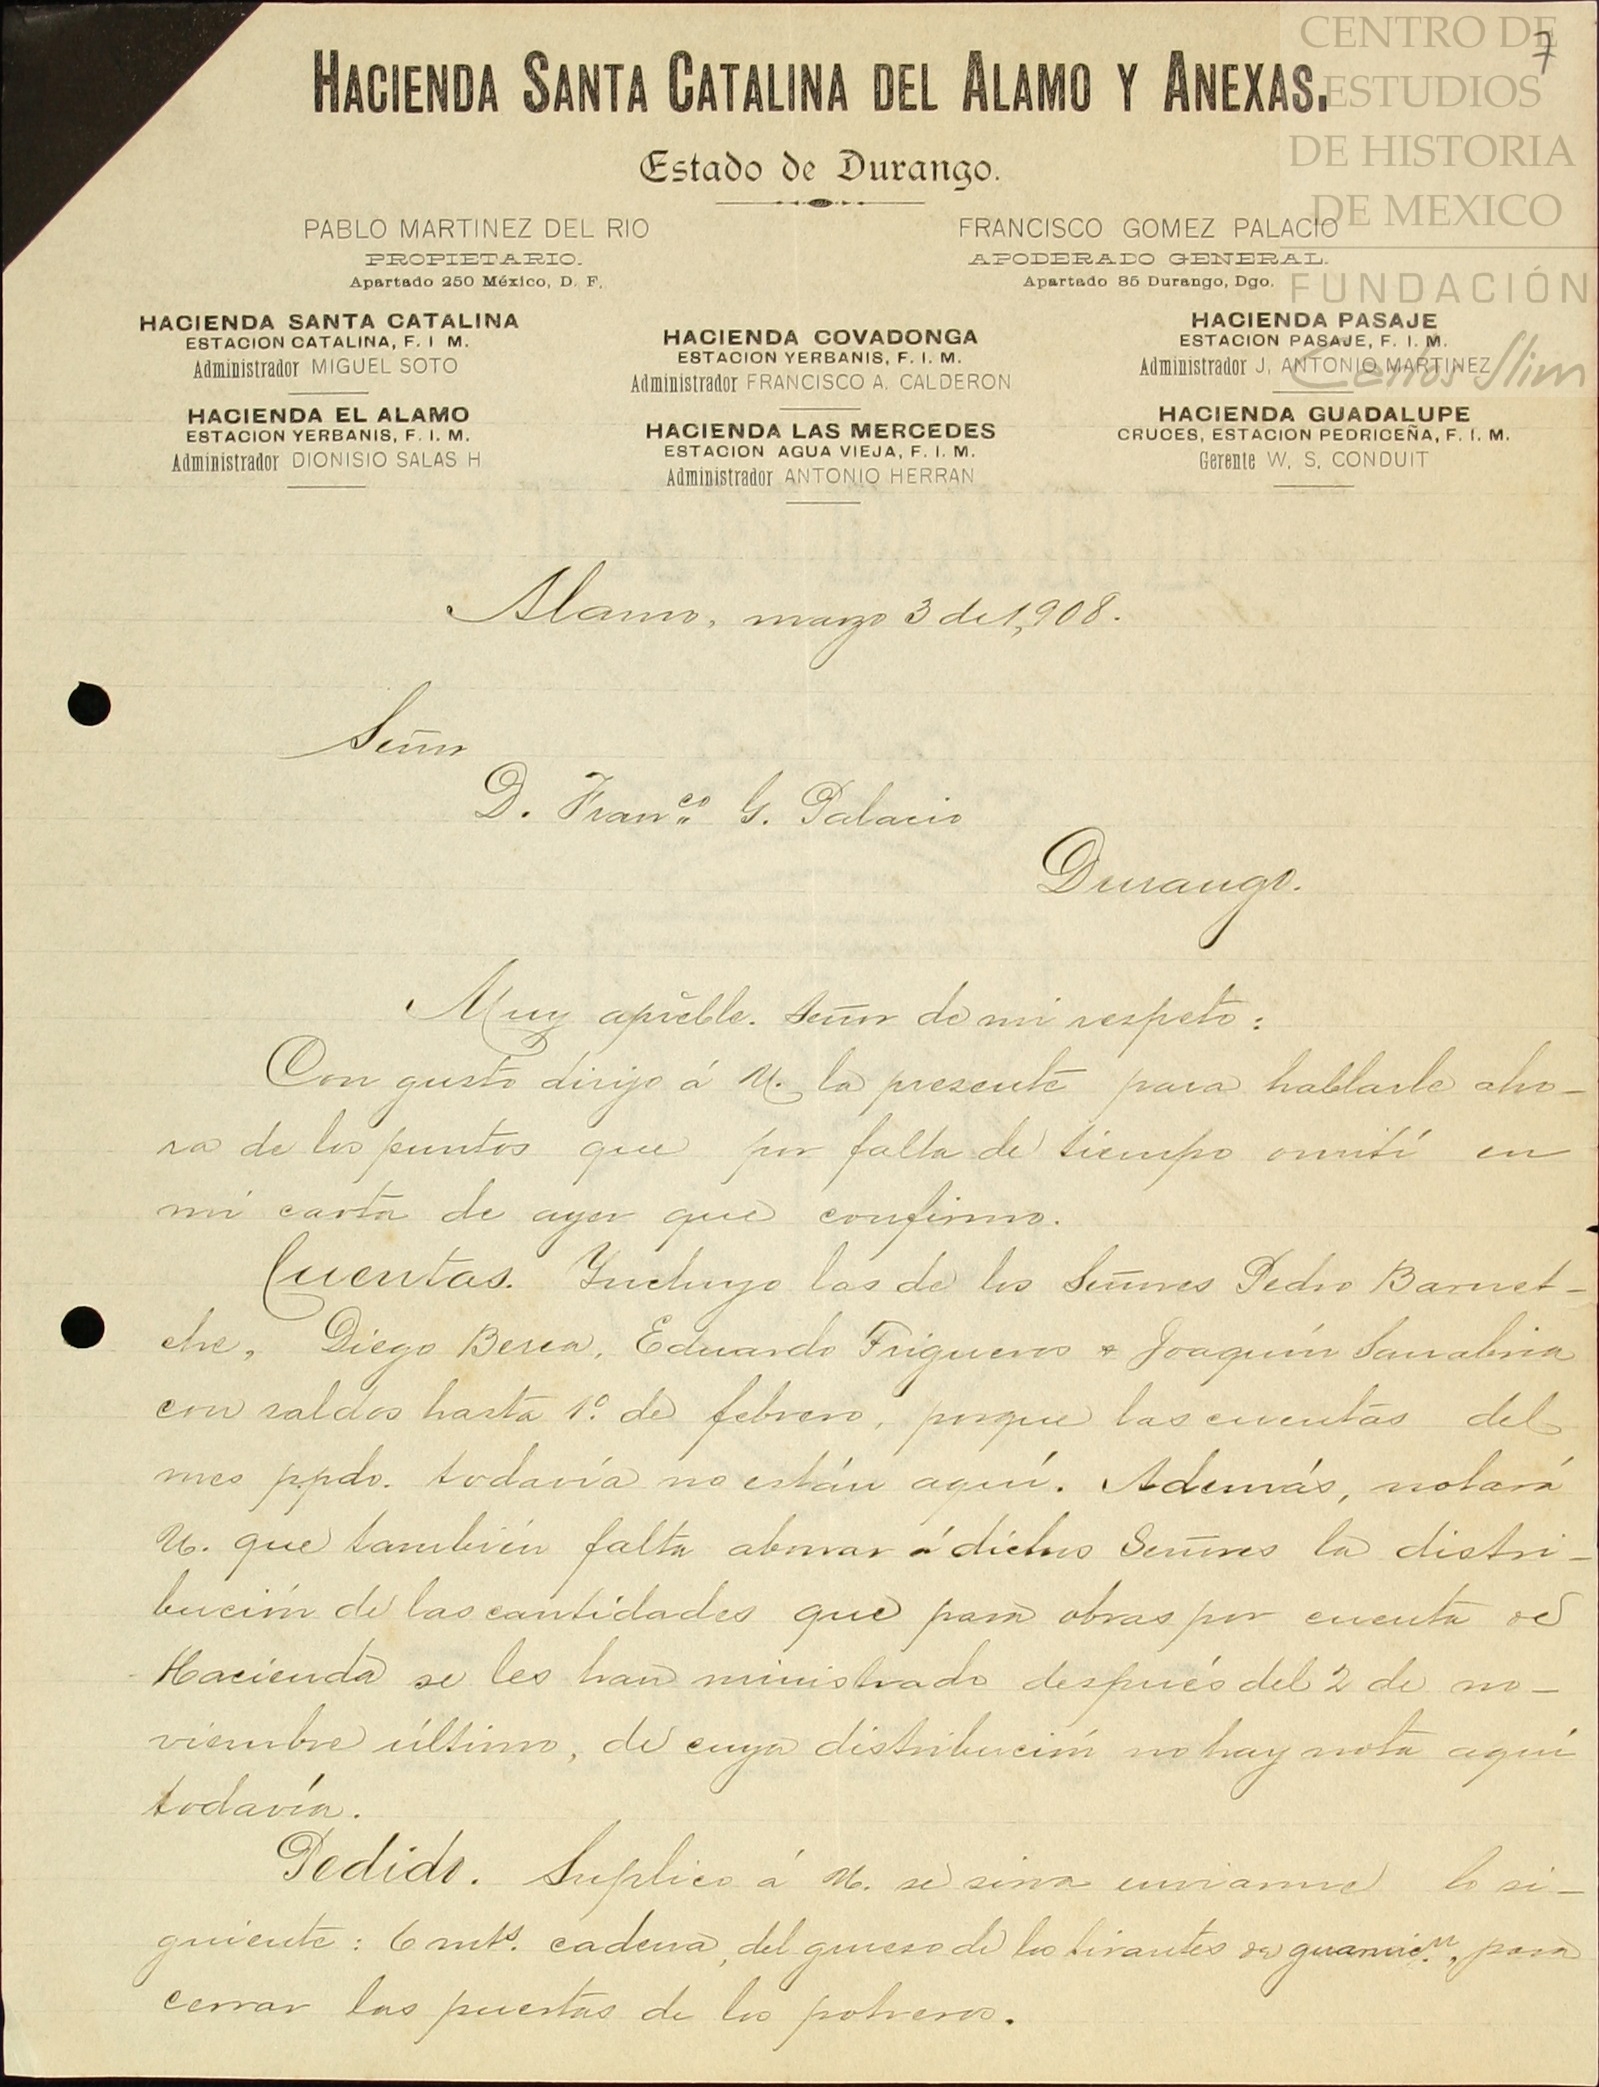 CENTRO DE
ESTUDIOS
DE HISTORIA
DE MEXICO
FUNDACIÓN
Carlos Slim
7
HACIENDA SANTA CATALINA DEL ALAMO Y ANEXAS.
Estado de Durango.
PABLO MARTINEZ DEL RIO
PROPIETARIO.
Apartado 250 México, D. F.
FRANCISCO GOMEZ PALACIO
APODERADO GENERAL.
Apartado 85 Durango, Dgo.
HACIENDA SANTA CATALINA
ESTACION CATALINA, F. I. M.
Administrador MIGUEL SOTO
HACIENDA EL ALAMO
ESTACION YERBANIS, F. I. M.
Administrador DIONISIO SALAS H
HACIENDA COVADONGA
ESTACION YERBANIS, F. I. M.
Administrador FRANCISCO A. CALDERON
HACIENDA LAS MERCEDES
ESTACION AGUA VIEJA, F. I. M.
Administrador ANTONIO HERRAN
HACIENDA PASAJE
ESTACION PASAJE, F. I. M.
Administrador J. ANTONIO MARTINEZ
HACIENDA GUADALUPE
CRUCES, ESTACION PEDRICEÑA, F. I. M.
Gerente W. S. CONDUIT
Alamo, marzo 3 de 1,908.
Señor
D. Franco. G. Palacio
Durango.
Muy apreble. Señor de mi respeto:
Con gusto dirijo á U. la presente para hablarle aho-
ra de los puntos que por falta de tiempo omití en
mi carta de ayer que confirmo.
Cuentas. Incluyo las de los Señores Pedro Barnet-
che, Diego Berea, Eduardo Frigueros & Joaquín Sanabria
con saldos hasta 1º. de febrero, porque las cuentas del
mes p.pdo. todavía no están aquí. Además, notará
U. que también falta abonar á dichos Señores la distri-
bución de las cantidades que para obras por cuenta de
Hacienda se les han ministrado después del 2 de no-
viembre último, de cuya distribución no hay nota aquí
todavía.
Pedido. Suplico á U. se sirva enviarme lo si-
guiente: 6 mts. cadena, del grueso de los tirantes de guarnicn., para
cerrar las puertas de los potreros.